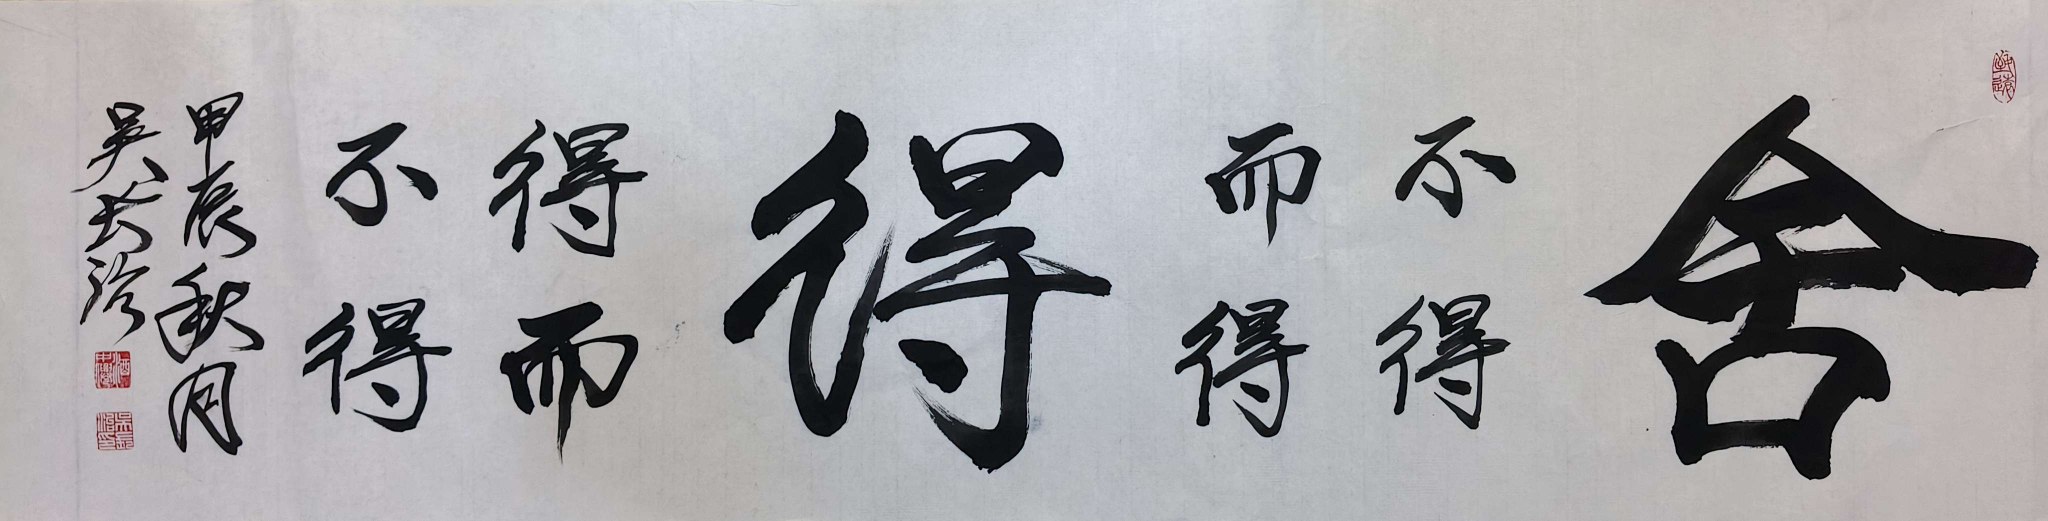 舍
不得
而得
得
得而
不得
甲辰秋月
吴长治